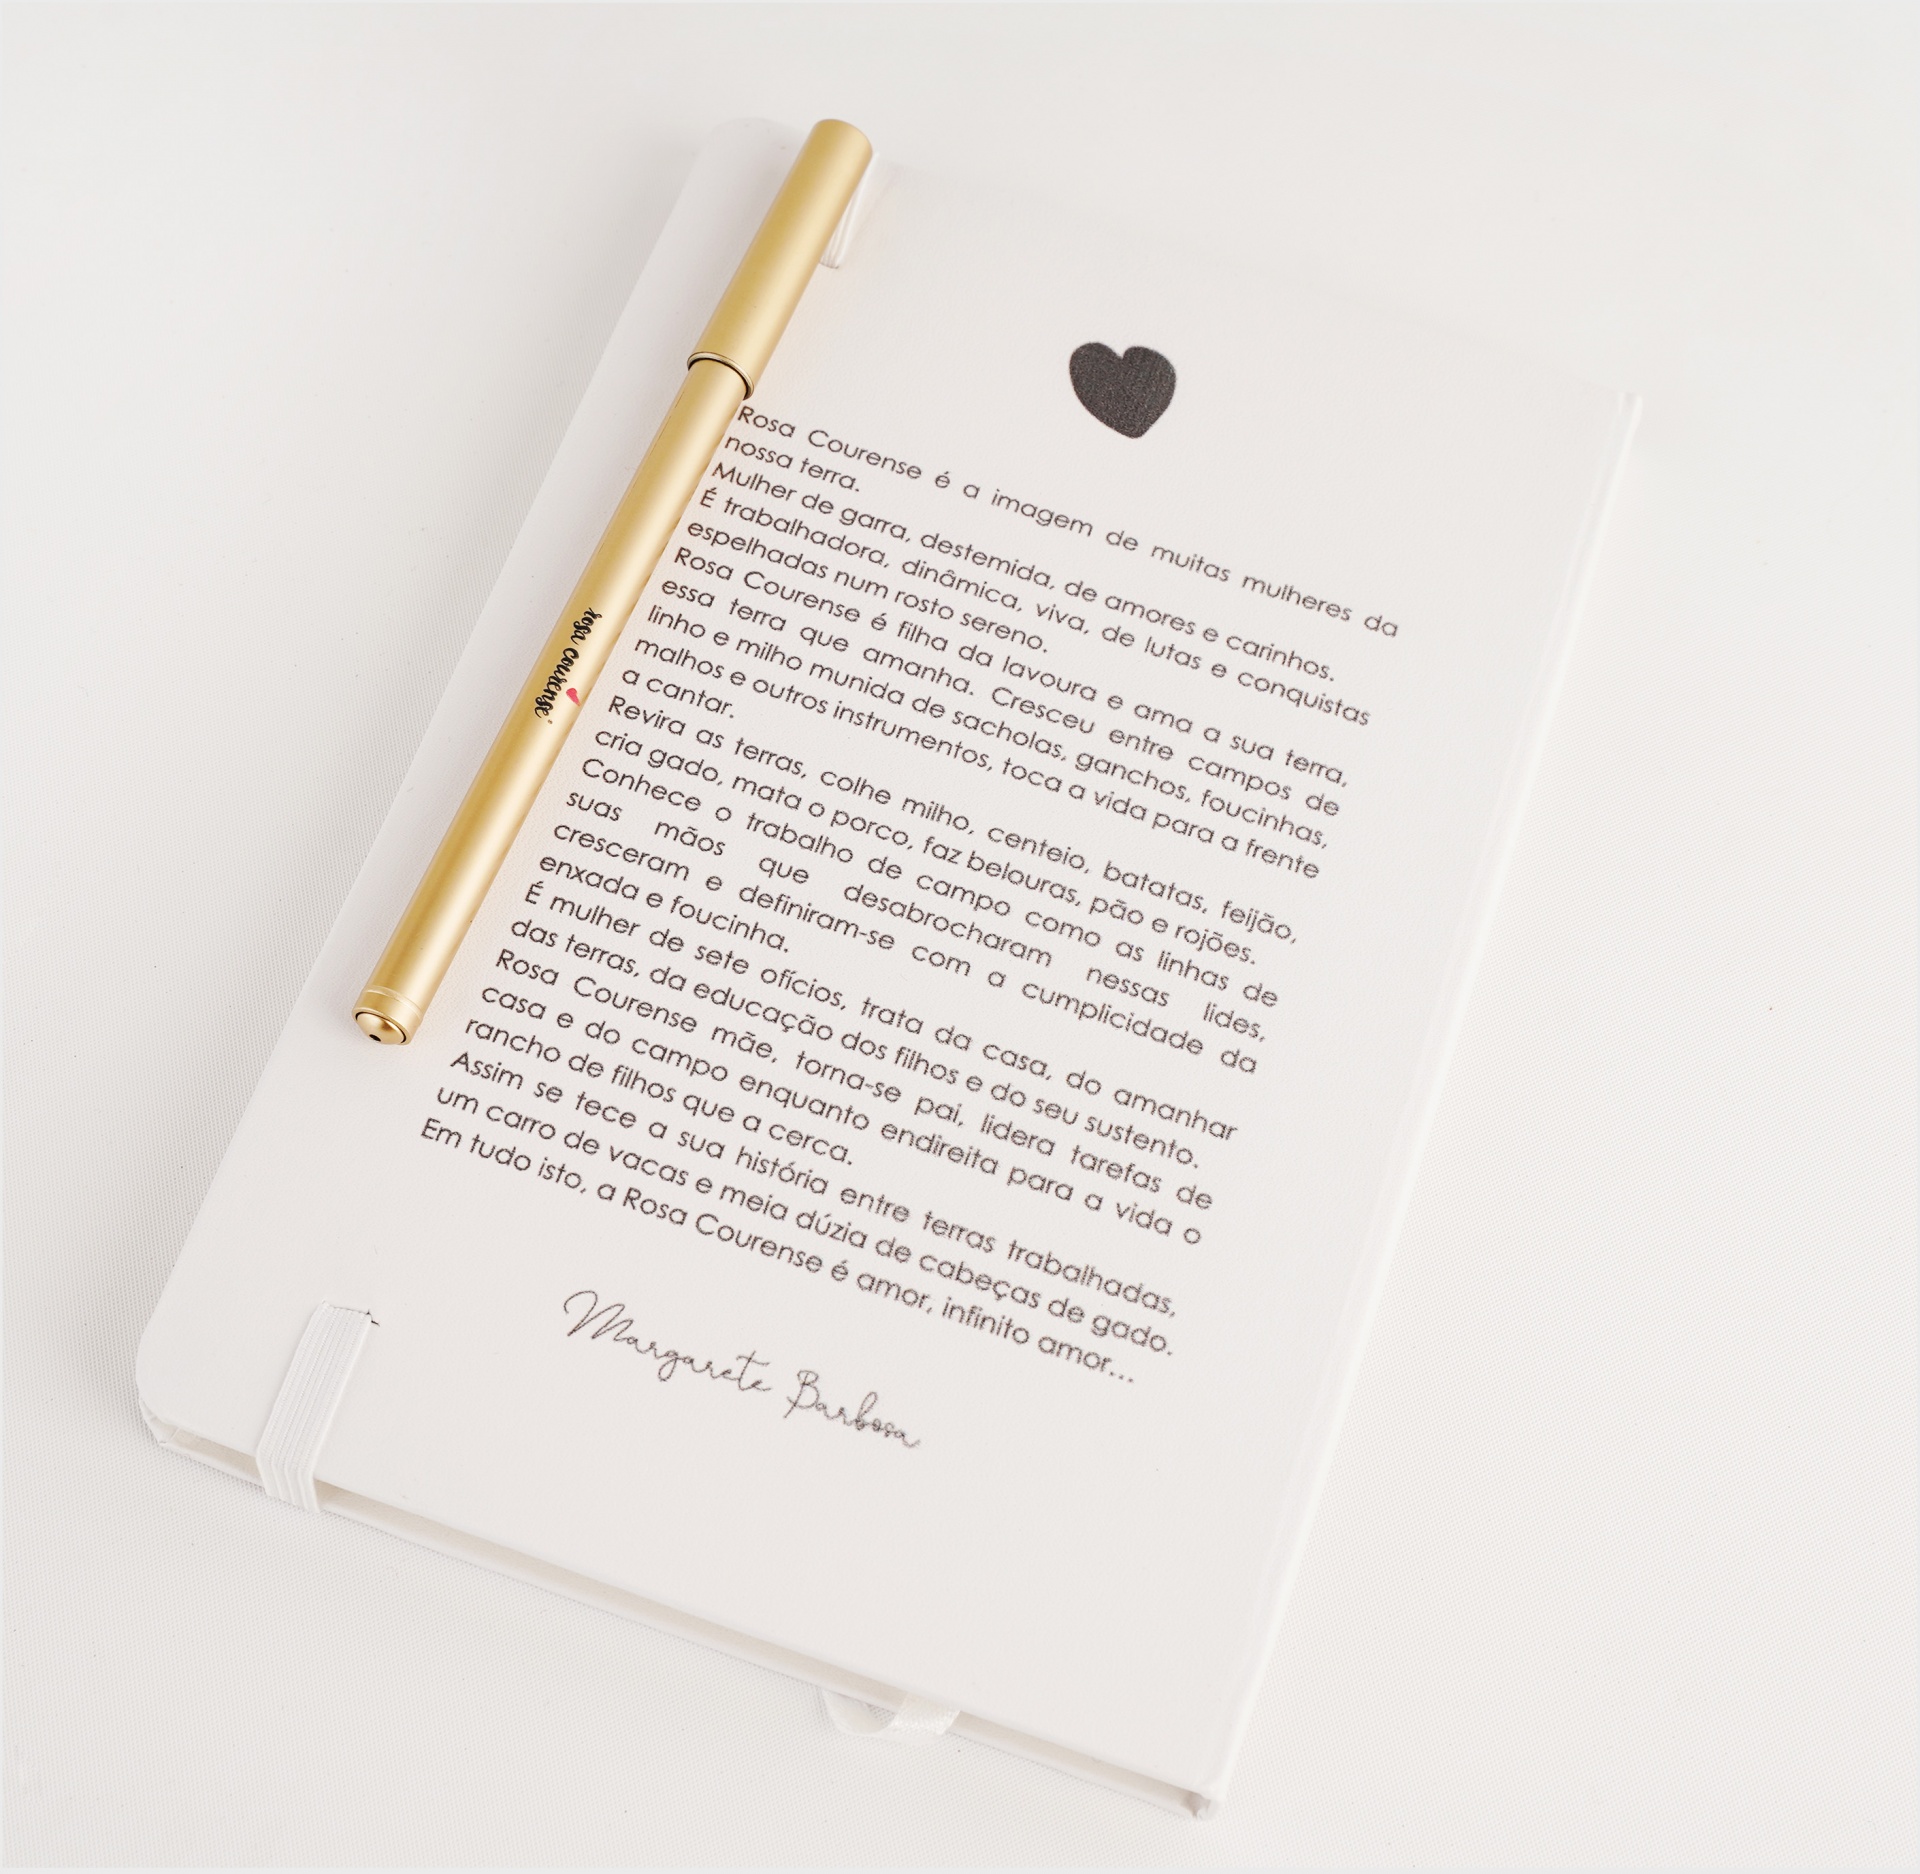 Rosa Courense é a imagem de muitas mulheres da
nossa terra.
Mulher de garra, destemida, de amores e carinhos.
É trabalhadora, dinâmica, viva, de lutas e conquistas
espelhadas num rosto sereno.
Rosa Courense é filha da lavoura e ama a sua terra,
essa terra que amanha. Cresceu entre campos de
linho e milho munida de sacholas, ganchos, foucinhas,
malhos e outros instrumentos, toca a vida para a frente
a cantar.
Revira as terras, colhe milho, centeio, batatas, feijão,
cria gado, mata o porco, faz belouras, pão e rojões.
Conhece o trabalho de campo como as linhas de
suas mãos que desabrocharam nessas lides,
cresceram e definiram-se com a cumplicidade da
enxada e foucinha.
É mulher de sete ofícios, trata da casa, do amanhar
das terras, da educação dos filhos e do seu sustento.
Rosa Courense mãe, torna-se pai, lidera tarefas de
casa e do campo enquanto endireita para a vida o
rancho de filhos que a cerca.
Assim se tece a sua história entre terras trabalhadas,
um carro de vacas e meia dúzia de cabeças de gado.
Em tudo isto, a Rosa Courense é amor, infinito amor...
Margarete Barbosa
rosa courense